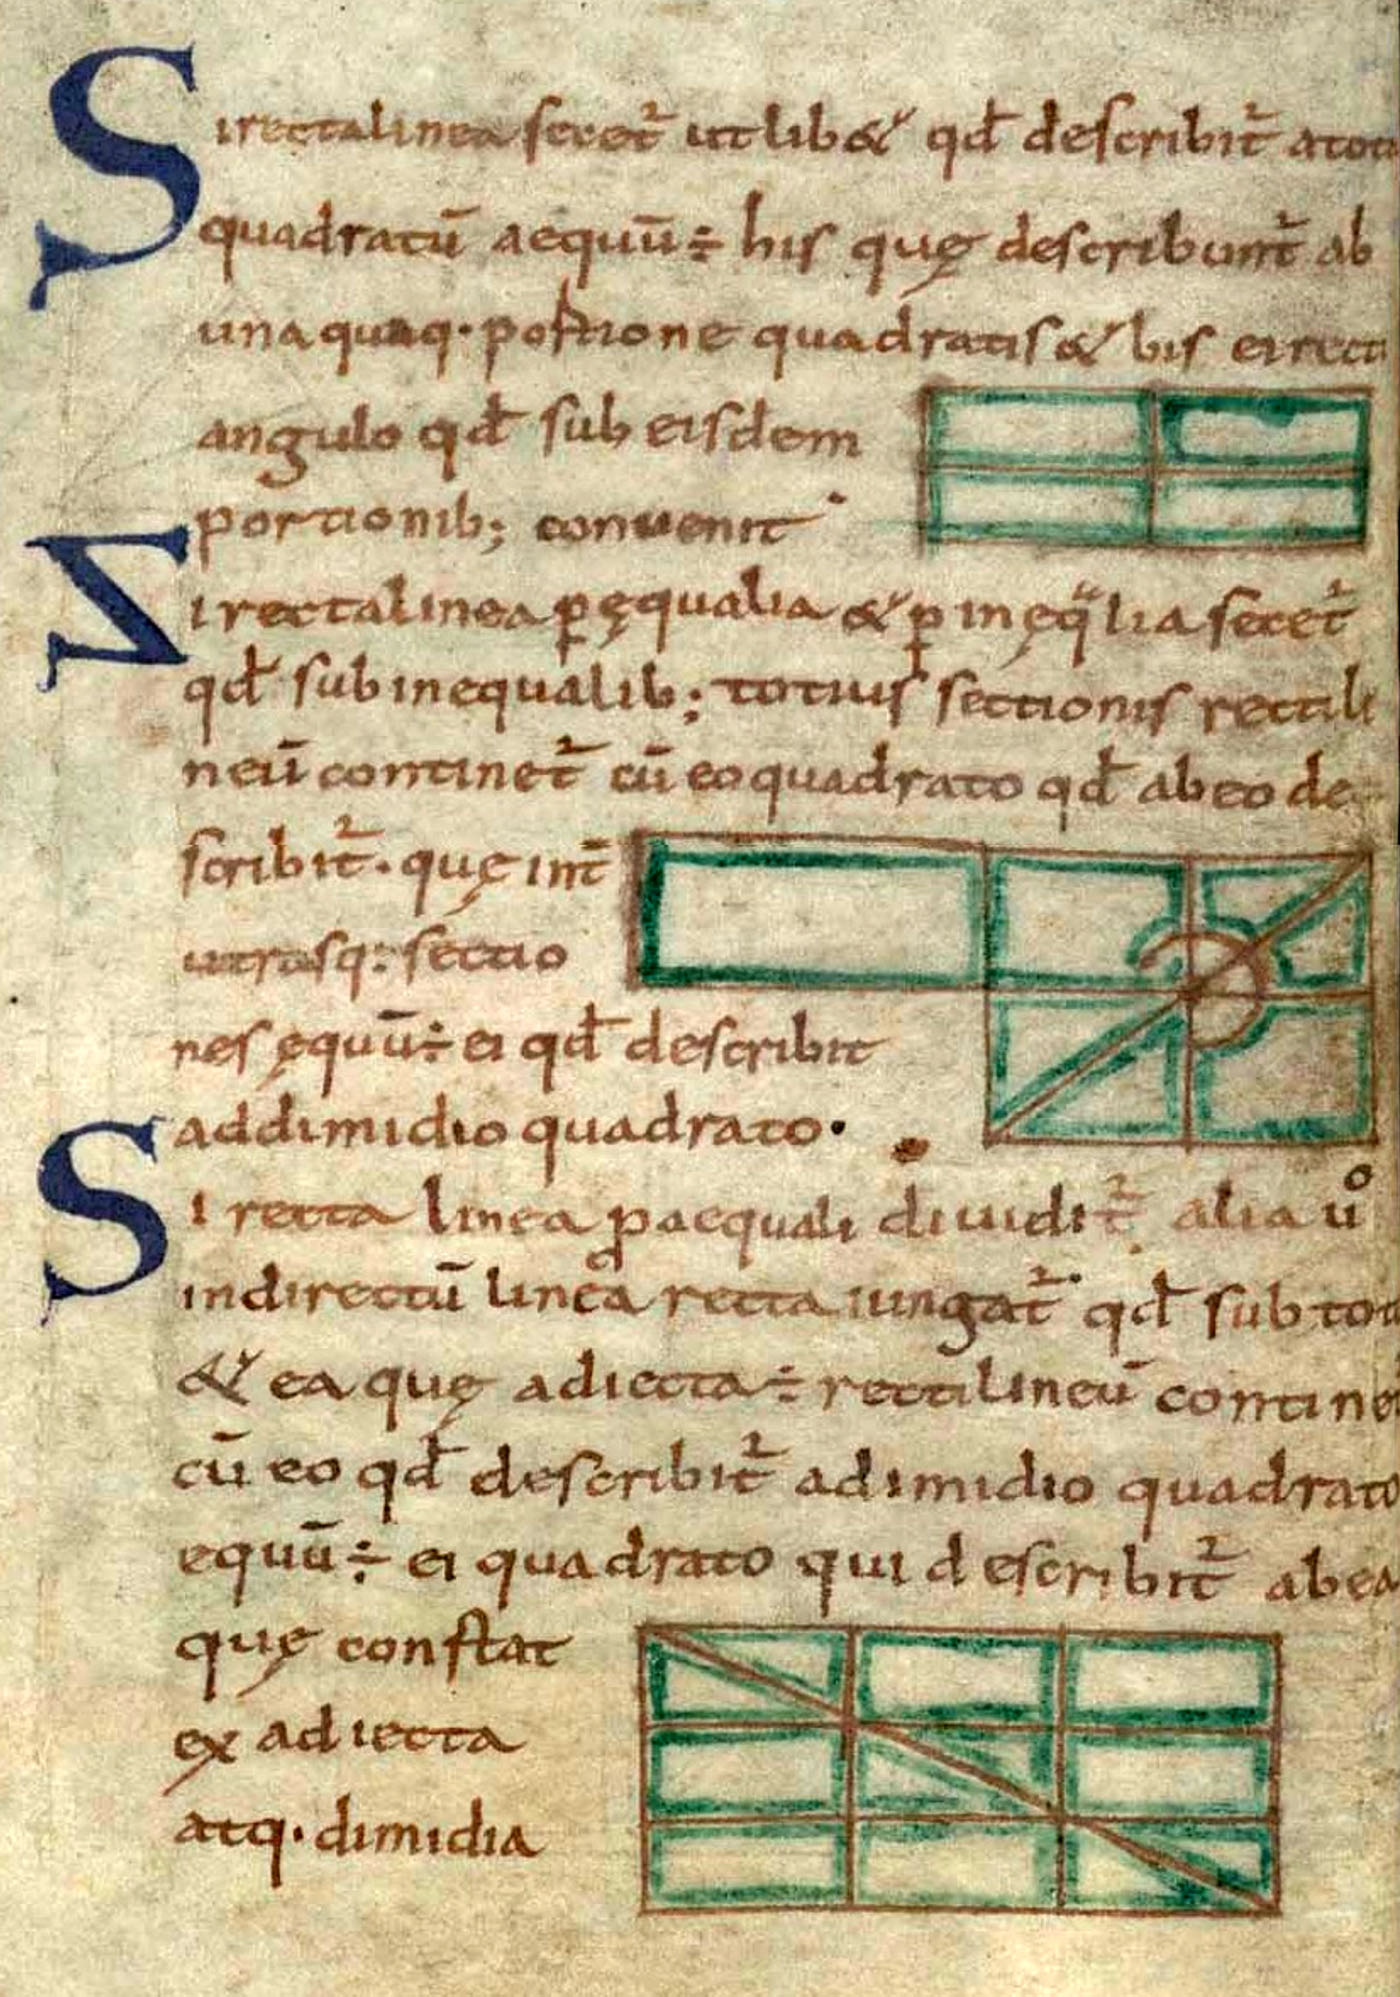 Si recta linea secet᷑ ut lib& qđ describit᷑ a tota
quadratū aequū÷ his quę describunt᷑ ab
una quaq· portione quadratis & bis ei recti
angulo qđ sub eisdem
portionib; conuenit
Si recta linea ꝑ ęqualia & ꝑ inęqᵃlia secet᷑
qđ sub inequalib; totius sectionis rectili
neū continet᷑ cū eo quadrato qđ ab eo de
scribit᷑· quę int̄
utrasq: sectio
nes ęquū÷ ei qđ describit
a ddimidio quadrato·
Si recta linea ꝑ aequali diuidit᷑ alia uº
indirectū linea recta iungat᷑ qđ sub tota
& ea quę adiecta÷ rectilineū contine
cū eo qđ describit᷑ a dimidio quadrato
equū÷ ei quadrato qui describit᷑ ab ea
quę constat
ex adiecta
atq· dimidia